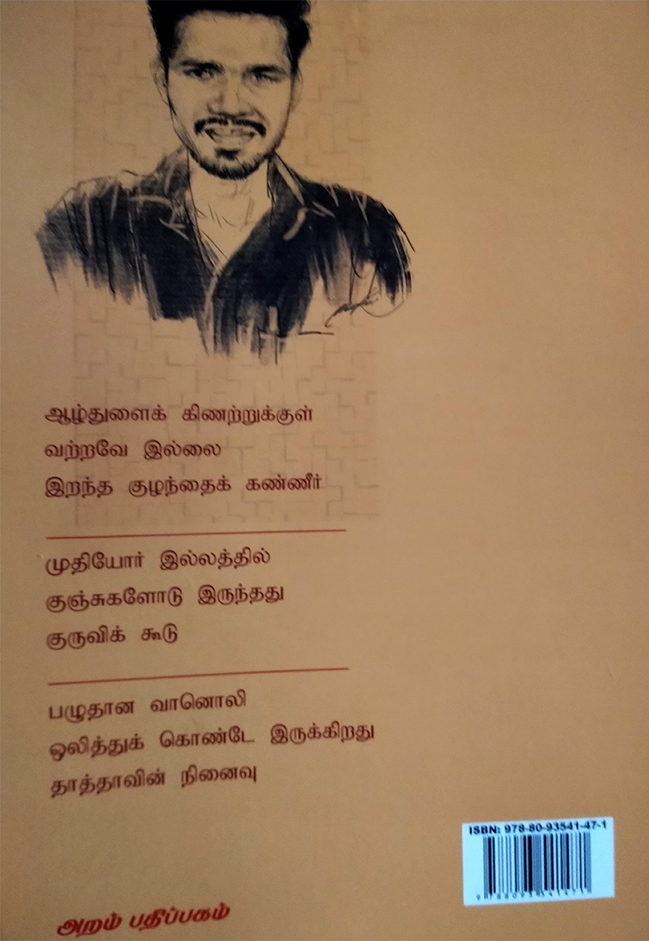 ஆழ்துளைக் கிணற்றுக்குள்
வற்றவே இல்லை
இறந்த குழந்தைக் கண்ணீர்
முதியோர் இல்லத்தில்
குஞ்சுகளோடு இருந்தது
குருவிக் கூடு
பழுதான வானொலி
ஒலித்துக் கொண்டே இருக்கிறது
தாத்தாவின் நினைவு
ISBN: 978-80-93541-47-1
அறம் பதிப்பகம்